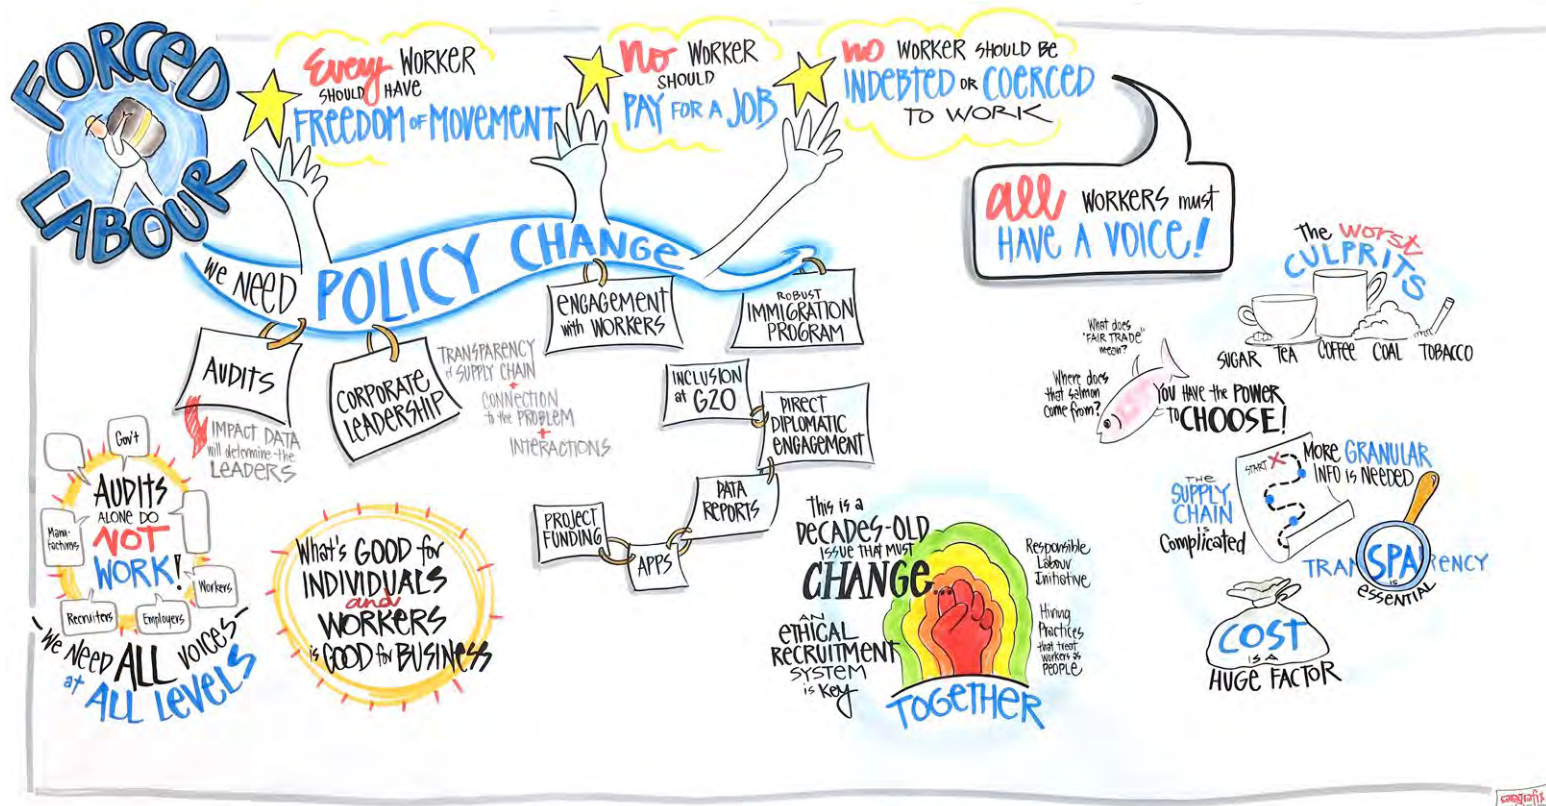 FORCED
LABOUR
Every WORKER
SHOULD HAVE
FREEDOM OF MOVEMENT
NO WORKER
SHOULD
PAY FOR A JOB
NO WORKER SHOULD BE
INDEBTED OR COERCED
TO WORK
all WORKERS must
HAVE A VOICE!
WE NEED POLICY CHANGE
AUDITS
IMPACT DATA
will determine the
LEADERS
CORPORATE
LEADERSHIP
TRANSPARENCY
of SUPPLY CHAIN
+
CONNECTION
to the PROBLEM
+
INTERACTIONS
ENGAGEMENT
with WORKERS
ROBUST
IMMIGRATION
PROGRAM
INCLUSION
at G20
DIRECT
DIPLOMATIC
ENGAGEMENT
DATA
REPORTS
APPS
PROJECT
FUNDING
Gov't
AUDITS
ALONE DO
NOT
WORK!
Manu-
facturings
Workers
Recruiters
Employers
WE NEED ALL VOICES
at ALL LEVELS
What's GOOD for
INDIVIDUALS
and
WORKERS
is GOOD for BUSINESS
This is a
DECADES-OLD
ISSUE THAT MUST
CHANGE...
AN
ETHICAL
RECRUITMENT
SYSTEM
is Key
TOGETHER
Responsible
Labour
Initiative
Hiring
Practices
that treat
workers as
PEOPLE
The worst
CULPRITS
SUGAR TEA COFFEE COAL TOBACCO
What does
"FAIR TRADE"
mean?
Where does
that salmon
come from?
YOU HAVE the POWER
TO CHOOSE!
THE
SUPPLY
CHAIN
is
Complicated
START X
MORE GRANULAR
INFO is NEEDED
TRANSPARENCY
IS
ESSENTIAL
COST
IS A
HUGE FACTOR